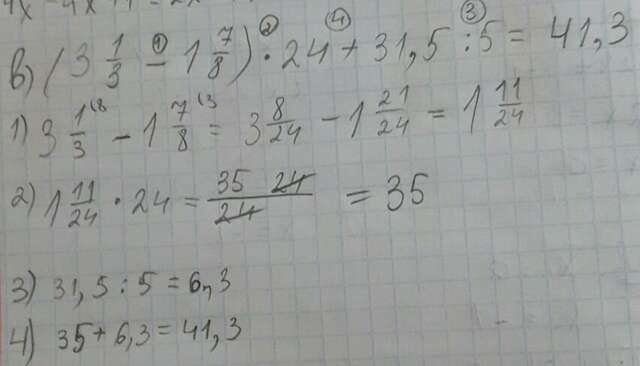 в) (3 1/3 - 1 7/8) · 24 + 31,5 : 5 = 41,3
① ② ④ ③
1) 3 1/3 (8 - 1 7/8 (3 = 3 8/24 - 1 21/24 = 1 11/24
2) 1 11/24 · 24 = 35 24/24 = 35
3) 31,5 : 5 = 6,3
4) 35 + 6,3 = 41,3